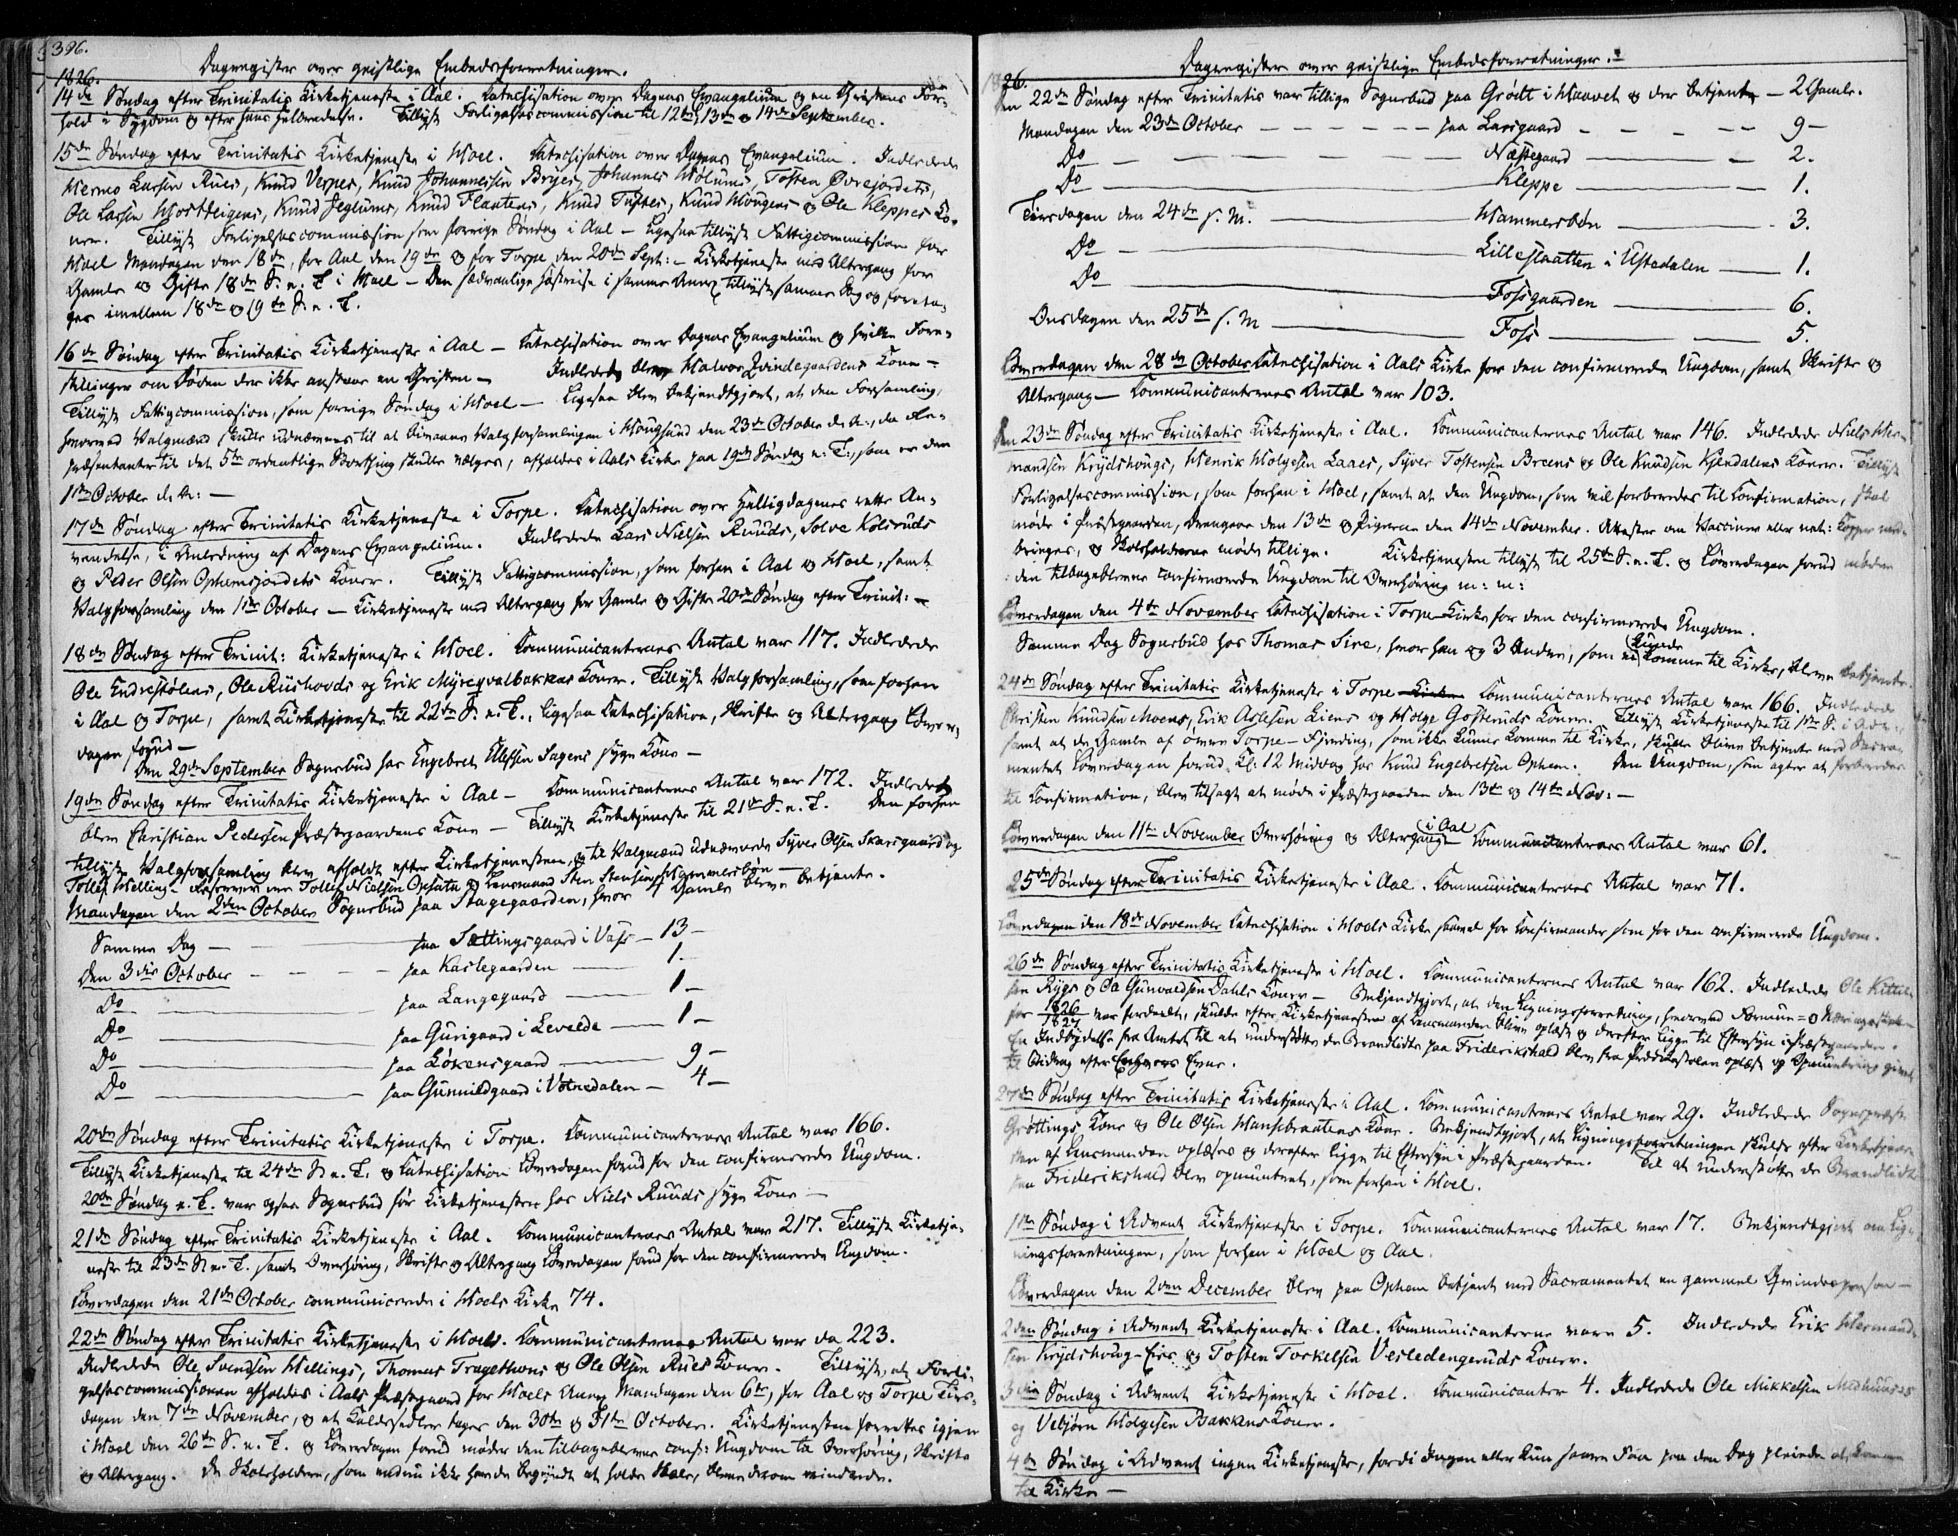 396.
Dagregister over geistlige Embedsforretninger.
1826.
14de Søndag efter Trinitatis Kirketjeneste i Aal. Catechisation over Dagens Evangelium og en Christens For-
hold i Sygdom og efter hans Helbredelse. Tillyst Forligelsescommission til 12te, 13de og 14de September.
15de Søndag efter Trinitatis Kirketjeneste i Hoel. Catechisation over Dagens Evangelium. Indledede
Hermo Larsen Rues, Knud Verpes, Knud Johannessen Bryes, Johannes Hølums, Tosten Øvrejordets,
Ole Larsen Hostveigens, Knud Jeglums, Knud Flaatens, Knud Tuftes, Knud Hougens og Ole Kleppes Ko-
ner. Tillyst Forligelsescommission som forrige Søndag i Aal – Ligesaa tillyst Fattigcommission for
Hoel Mandagen den 18de, for Aal den 19de og for Torpe den 20de Sept: – Kirketjeneste med Altergang for
Gamle og Gifte 18de S. e. T. i Hoel – Den sædvanlige Høstreise i samme Annex tillyst samme Dag og foreta-
ges imellem 18de og 19de S. e. T.
16de Søndag efter Trinitatis Kirketjeneste i Aal – Catechisation over Dagens Evangelium og hvilke Fore-
stillinger om Døden der ikke anstaar en Christen – Indledet blev Halvor Qvindegaardens Kone –
Tillyst Fattigcommission, som forrige Søndag i Hoel – Ligesaa blev bekjendtgjort, at den Forsamling,
hvorved Valgmænd skulle udnævnes til at bivaane Valgforsamlingen i Hougsund den 23de October d. A., da Re-
præsentanter til det 5te ordentlige Storthing skulle vælges, afholdes i Aals Kirke paa 19de Søndag e. T., som er den
1ste October d. A: –
17de Søndag efter Trinitatis Kirketjeneste i Torpe. Catechisation over Helligdagenes rette An-
vendelse, i Anledning af Dagens Evangelium. Indledede Lars Nielsen Ruuds, Solve Kolsruds
og Peder Olsen Ophemsjordets Koner. Tillyst Fattigcommission, som forhen i Aal og Hoel, samt
Valgforsamling den 1ste October – Kirketjeneste med Altergang for Gamle og Gifte 20de Søndag efter Trinit: –
18de Søndag efter Trinit: Kirketjeneste i Hoel. Communicanternes Antal var 117. Indledede
Ole Endrestølens, Ole Riishovds og Erik Myreqvalbakkens Koner. Tillyst Valgforsamling, som forhen
i Aal og Torpe, samt Kirketjeneste til 22de S. e. T., ligesaa Catechisation, Skrifte og Altergang Løver-
dagen forud –
Den 29de September Sognebud hos Engebret Ellefsen Sagens syge Kone –
19de Søndag efter Trinitatis Kirketjeneste i Aal – Communicanternes Antal var 172. Indledet
blev Christian Pedersen Præstegaardens Kone – Tillyst Kirketjeneste til 21de S. e. T. Den forhen
tillyste Valgforsamling blev afholdt efter Kirketjenesten, og til Valgmænd udnævnede Syver Olsen Skarsgaard og
Tollef Helling – Reserver ere Tollef Nielsen Opsata og Lensmand Sten Stensen Hammersbøn –
Mandagen den 2den October Sognebud paa Stagegaarden, hvor 4 Gamle bleve betjente.
Samme Dag – paa Sættingsgaard i Vats – 13 –
Den 3die October – – – paa Karlegaarden – 1. –
Do – paa Langegaard – 1 –
Do – paa Gurigaard i Leveldе – 1 –
Do – paa Løkensgaard – 9 –
Do – paa Gunnildgaard i Votnedalen – 4 –
20de Søndag efter Trinitatis Kirketjeneste i Torpe. Communicanternes Antal var 166.
Tillyst Kirketjeneste til 24de S. e. T. og Catechisation Løverdagen forud for den confirmerede Ungdom.
20de Søndag e. T. var ogsaa Sognebud før Kirketjenesten hos Niels Ruuds syge Kone –
21de Søndag efter Trinitatis Kirketjeneste i Aal. Communicanternes Antal var 217. Tillyst Kirketje-
neste til 23de S. e. T. samt Overhøring, Skrifte og Altergang Løverdagen forud for den confirmerede Ungdom.
Løverdagen den 21de October communicerede i Hoels Kirke 74.
22de Søndag efter Trinitatis Kirketjeneste i Hoel. Communicanternes Antal var da 223.
Indledede Ole Svendsen Hellings, Thomas Tragethons og Ole Olsen Rues Koner. Tillyst, at Forli-
gelsescommissionen afholdes i Aals Præstegaard for Hoels Annex Mandagen den 6te, for Aal og Torpe Tirs-
dagen den 7de November, og at Kaldsedler tages den 30te og 31te October. Kirketjenesten forrettes igjen
i Hoel den 26de S. e. T. og Løverdagen forud møder den tilbageblevne conf: Ungdom til Overhøring, Skrifte
og Altergang. De Skoleholdere, som endnu ikke havde begyndt at holde Skole, bleve derom mindede.
Dagregister over geistlige Embedsforretninger.
1826.
Den 22de Søndag efter Trinitatis var tillige Sognebud paa Grøtt i Haavet og der betjente – 2 Gamle.
Mandagen den 23de October – – – paa Larsgaard – – – 9 –
Do – Næstegaard – 2.
Do – Kleppe – 1.
Tirsdagen den 24de s. M. – Hammersbøn – 3.
Do – Lilleslaatten i Ustedalen – 1.
Do – Fossgaarden – 6.
Onsdagen den 25de s. M – Foss – 5.
Løverdagen den 28de October Catechisation i Aals Kirke for den confirmerede Ungdom, samt Skrifte og
Altergang – Communicanternes Antal var 103.
Den 23de Søndag efter Trinitatis Kirketjeneste i Aal. Communicanternes Antal var 146. Indledede Niels Her-
mandsen Krydshougs, Henrik Holgesen Laaes, Syver Tostensen Breens og Ole Knudsen Kjendalens Koner. Tillyst
Forligelsescommission, som forhen i Hoel, samt at den Ungdom, som vil forberedes til Confirmation, skal
møde i Præstegaarden, Drengene den 13de og Pigerne den 14de November. Attester om Vaccinen eller nat: Kopper med-
bringes, og Skoleholderne møde tillige. Kirketjenesten tillyst til 25de S. e. T. og Løverdagen forud møder
den tilbageblevne confirmerede Ungdom til Overhøring m: m:
Løverdagen den 4de November Catechisation i Torpe-Kirke for den confirmerede Ungdom.
Samme Dag Sognebud hos Thomas Sire, hvor han og 3 Andre, som ei kunde komme til Kirke, bleve betjente.
24de Søndag efter Trinitatis Kirketjeneste i Torpe Communicanternes Antal var 166. Indledede
Christen Knudsen Moens, Erik Aslesen Liens og Holge Gosteruds Koner. Tillyst Kirketjeneste til 1ste S. i Adv.,
samt at de Gamle af øvre Torpe-Fjerding, som ikke kunne komme til Kirke, skulle blive betjente med Sacra-
mentet Løverdagen forud Kl: 12 Middag hos Knud Engebretsen Ophem. Den Ungdom, som agter at forberedes
til Confirmation, blev tilsagt at møde i Præstegaarden den 13de og 14de Nov: –
Løverdagen den 11te November Overhøring og Altergang i Aal Communicanternes Antal var 61.
25de Søndag efter Trinitatis Kirketjeneste i Aal. Communicanternes Antal var 71.
Løverdagen den 18de November Catechisation i Hoels Kirke saavel for Confirmander som for den confirmerede Ungdom.
26de Søndag efter Trinitatis Kirketjeneste i Hoel. Communicanternes Antal var 162. Indledede Ole Kittel-
sen Rygs og Ole Gunvaldsen Dahls Koner – Bekjendtgjort, at den Ligningsforretning, hvorved Formue- og Næringsskat
for 1826/1827 var fordeelt, skulde efter Kirketjenesten af Lensmanden blive oplæst og derefter ligge til Eftersyn i Præstegaarden.
En Indbydelse fra Amtet til at understøtte de Brandlidte paa Friderikshald blev fra Prædikestolen oplæst og Opmuntring givet
til Bidrag efter Enhvers Evne.
27de Søndag efter Trinitatis Kirketjeneste i Aal. Communicanternes Antal var 29. Indledede Sognepræst
Grøttings Kone og Ole Olsen Hansebraatens Kone. Bekjendtgjort, at Ligningsforretningen skulde efter Kirketjene-
sten af Lensmanden oplæses og derefter ligge til Eftersyn i Præstegaarden. Til at understøtte de Brandlidte
paa Friderikshald blev opmuntret, som forhen i Hoel.
1ste Søndag i Advent Kirketjeneste i Torpe. Communicanternes Antal var 17. Bekjendtgjort om Lig-
ningsforretningen, som forhen i Hoel og Aal.
Løverdagen den 2den December blev paa Ophem betjent med Sacramentet en gammel Qvindesperson –
2den Søndag i Advent Kirketjeneste i Aal. Communicanterne vare 5. Indledede Erik Hermand-
sen Krydshoug-Eies og Tosten Torkelsen Vesledengeruds Koner.
3die Søndag i Advent Kirketjeneste i Hoel. Communicanter 4. Indledede Ole Mikkelsen Medhuuses
og Vebjørn Holgesen Bakkens Koner.
4de Søndag i Advent ingen Kirketjeneste, fordi Ingen eller kun saare Faa paa den Dag pleiede at komme
til Kirke –